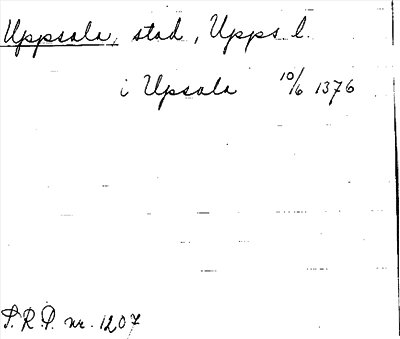 Uppsala, stad, Upps. l.
i Upsala 10/6 1376
P.R.P. nr. 1207